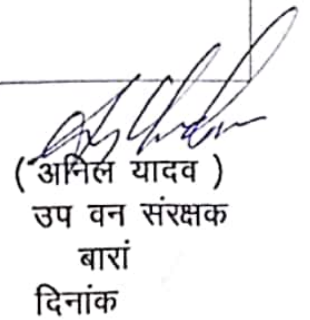 ( अनिल यादव )
उप वन संरक्षक
बारां
दिनांक